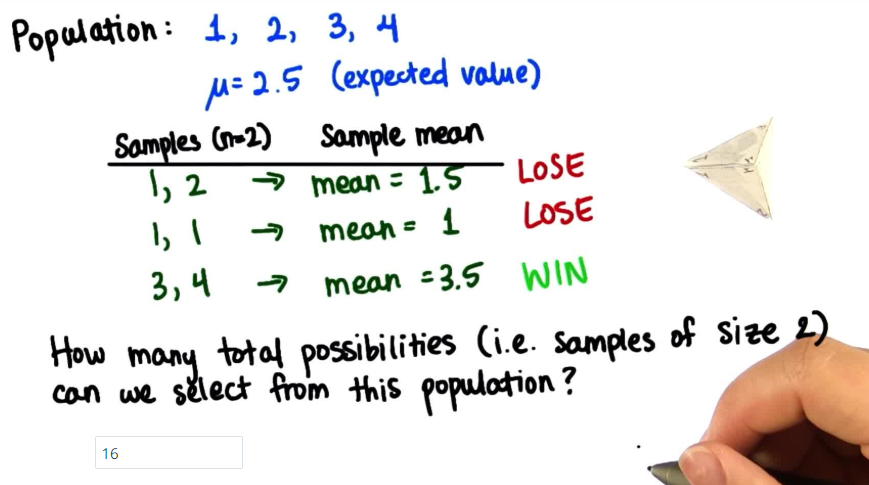 Population: 1, 2, 3, 4
μ = 2.5 (expected value)
Samples (n=2) Sample mean
1, 2 → mean = 1.5 LOSE
1, 1 → mean = 1 LOSE
3, 4 → mean = 3.5 WIN
How many total possibilities (i.e. samples of size 2)
can we select from this population?
16